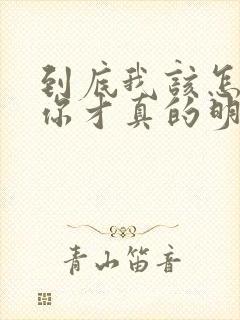 到底我該怎
你才真的明
青山笛音